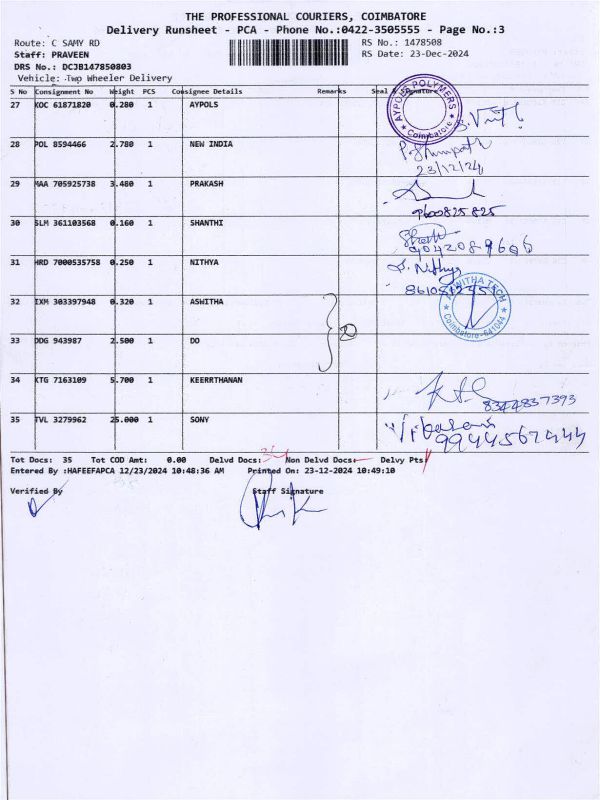 THE PROFESSIONAL COURIERS, COIMBATORE
Delivery Runsheet - PCA - Phone No.:0422-3505555 - Page No.:3
Route: C SAMY RD RS No.: 1478508
Staff: PRAVEEN RS Date: 23-Dec-2024
DRS No.: DCJB147850803
Vehicle: Two Wheeler Delivery
S No Consignment No Weight PCS Consignee Details Remarks Seal & Signature
27 KOC 61871820 0.280 1 AYPOLS
AYPOLS POLYMERS
Coimbatore
28 POL 8594466 2.780 1 NEW INDIA
23/12/24
29 MAA 705925738 3.480 1 PRAKASH
9600825825
30 SLM 361103568 0.160 1 SHANTHI
9042089606
31 HRD 7000535758 0.250 1 NITHYA
S. Nithya
32 IXM 303397948 0.320 1 ASWITHA
ASWITHA TECH
Coimbatore-641044
33 DDG 943987 2.500 1 DO
2
34 KTG 7163109 5.700 1 KEERRTHANAN
8344837393
35 TVL 3279962 25.000 1 SONY
9944567444
Tot Docs: 35 Tot COD Amt: 0.00 Delvd Docs: Non Delvd Docs: Delvy Pts:
Entered By :HAFEEFAPCA 12/23/2024 10:48:36 AM Printed On: 23-12-2024 10:49:10
Verified By Staff Signature